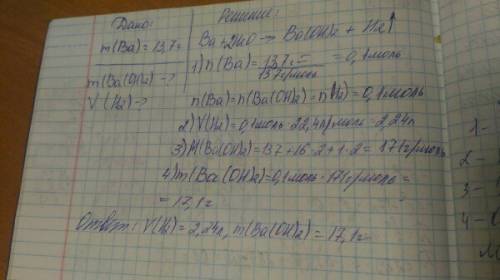 Дано:
m(Ba)=13,7г
m(Ba(OH)2)-?
V(H2)-?
Решение:
Ba+2H2O → Ba(OH)2 + H2↑
1) n(Ba)= 13,7г / 137г/моль = 0,1моль
n(Ba)=n(Ba(OH)2=n(H2)=0,1моль
2) V(H2)=0,1моль·22,4л/моль=2,24л
3) M(Ba(OH)2)=137+16·2+1·2=171г/моль
4) m(Ba(OH)2)=0,1моль·171г/моль=
=17,1г
Ответ: V(H2)=2,24л, m(Ba(OH)2)=17,1г
1-
2-
3-
4-